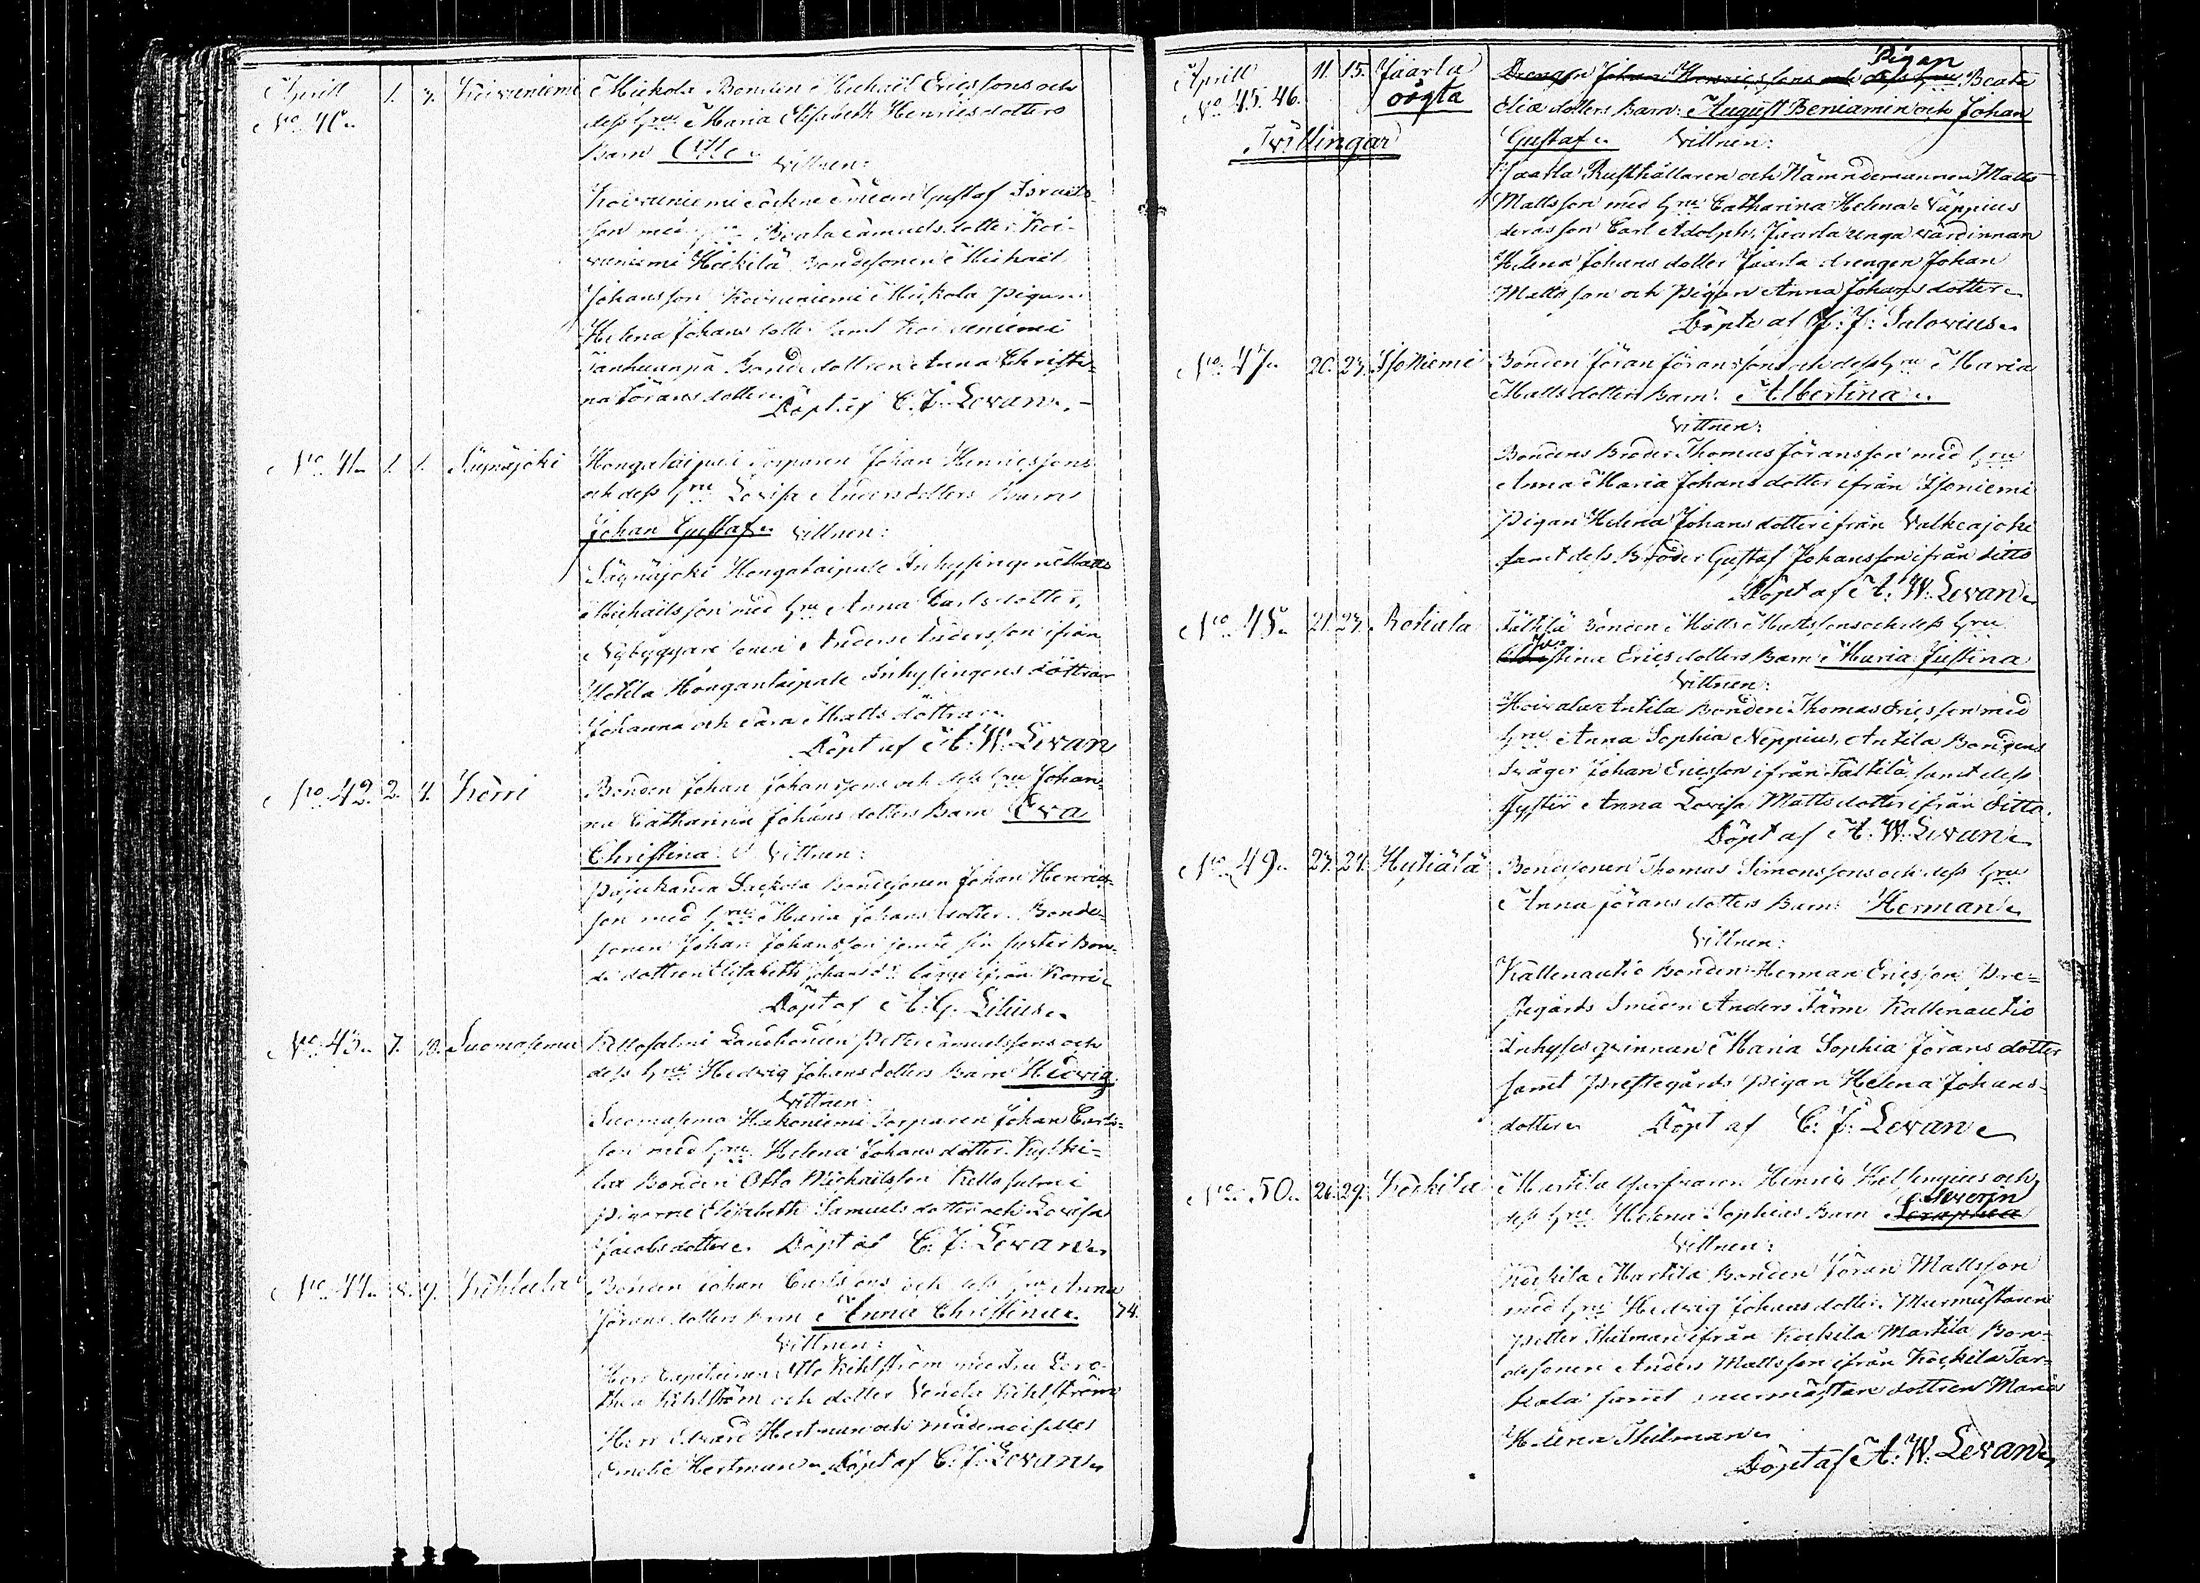 Aprill 1. 3. Koivuniemi Mickola Bonden Michaël Ericssons och
No 40. dess Hru Maria Elisabeth Henricsdotters
Barn Otto.
Vittnen:
Koivuniemi Sockne Smeden Gustaf Israels-
son med Hru Beata Samuelsdotter Koi-
vuniemi Heikilä Bondesonen Michaël
Johansson Koivuniemi Mickola Pigan
Helena Johansdotter samt Koivuniemi
Bondedottren Anna Christi-
na Göransdotter
Döpt af C. J. Levan.
No 41. 1. 1. Sägnäjoki Hongataipale Torparen Johan Henricssons
och dess Hru Lovisa Andersdotters Barn
Johan Gustaf. Vittnen:
Sägnäjoki Hongataipale Inhysingen Matts
Michaëlsson med Hru Anna Carlsdotter,
Nybyggare sonen Anders Andersson ifrån
Hongantaipale Inhysingens döttrar
Johanna och Sara Matts döttrar
Döpt af A. W. Levan
No 42. 2. 4. Körri Bonden Johan Johanssons och dess Hru Johan-
na Catharina Johansdotters Barn Eva
Christina. Vittnen:
Pajukanda Bondesonen Johan Henrics-
son med Hru Maria Johansdotter. Bonde-
sonen Johan Johansson jemte sin syster Bon-
de dottren Elisabeth ifrån Körri
Döpt af A. G. Lilius.
No 43. 7. Suomasema Kellosalmi Landbonden Petter Samuelssons och
dess Hru Hedvig Johansdotters Barn Hedvig.
Vittnen:
Suomasema Hakoniemi Torparen Johan Carls-
son med Hru Helena Johansdotter.
Bonden Otto Michaëlsson Kellosalmi
Pigorne Elisabeth Samuelsdotter och Lovisa
Jacobsdotter. Döpt af C. J. Levan.
No 44. 8. 9. Bonden Johan Carlssons och dess Hru Anna
Göransdotters Barn Anna Christina. 74.
Vittnen:
Herr Capitainen Otto Kihlström med Fru
Kihlström och dotter Kihlström
Herr Edvard Hertman och mademoiselle
Emelie Hertman. Döpt af C. J. Levan.
Aprill 11. 15. Jaarla Pigan
No 45. 46. oägta Drengen Johan Henricssons och dess Hru Beata
Eliædotters Barn: August Beniamin och Johan
Tvillingar
Gustaf. Vittnen:
Jaarla Rusthållaren och Nämndemannen Matts
Mattsson med Hru Catharina Helena Näppius
deras son Carl Adolph, Jaarla unga värdinnan
Helena Johansdotter Jaarla drengen Johan
Mattsson och Pigan Anna Johansdotter
Döpte af G. J. Salovius.
No 47. 20. 23. Isoniemi Bonden Jöran Jöranssons och dess Hru Maria
Mattsdotters Barn: Albertina.
Vittnen:
Bondens Broder Thomas Jöransson med Hru
Anna Maria Johansdotter ifrån Isoniemi
Pigan Helena Johansdotter ifrån Valkeajoki
samt dess Broder Gustaf Johansson ifrån ditto
Döpt af A. W. Levan
No 48. 21. 23. Rohiala Bonden Matts Mattssons och dess Hru
Justina Ericsdotters Barn: Maria Justina
Vittnen:
Antila Bonden Thomas Ericsson med
Hru Anna Sophia Neppius, Antila Bondens
Svåger Johan Ericsson ifrån samt dess
syster Anna Lovisa Mattsdotter ifrån ditto.
Döpt af A. W. Levan
No 49. 23. 24. Hytiälä Bondesonen Thomas Simonssons och dess Hru
Anna Göransdotters Barn: Herman
Vittnen:
Kallenautio Bonden Herman Ericsson, Pre-
stegårds Smeden Anders Färm Kallenautio
Inhyses qvinnan Maria Sophia Jörans dotter
samt Prestegårds Pigan Helena Johans-
dotter Döpt af C. J. Levan
No 50. 26. 29. Koskila Martila Henric Hellenius och
Severin
dess Hru Helena Sophias Barn Seraphia
Vittnen:
Koskila Martila Bonden Jöran Mattsson
med Hru Hedvig Johansdotter. Murmästaren
Petter Thilman ifrån Koskila Martila Bon-
desonen Anders Mattsson ifrån Koskila
samt murmästare dottren Maria
Helena Thilman
Döpt af A. W. Levan